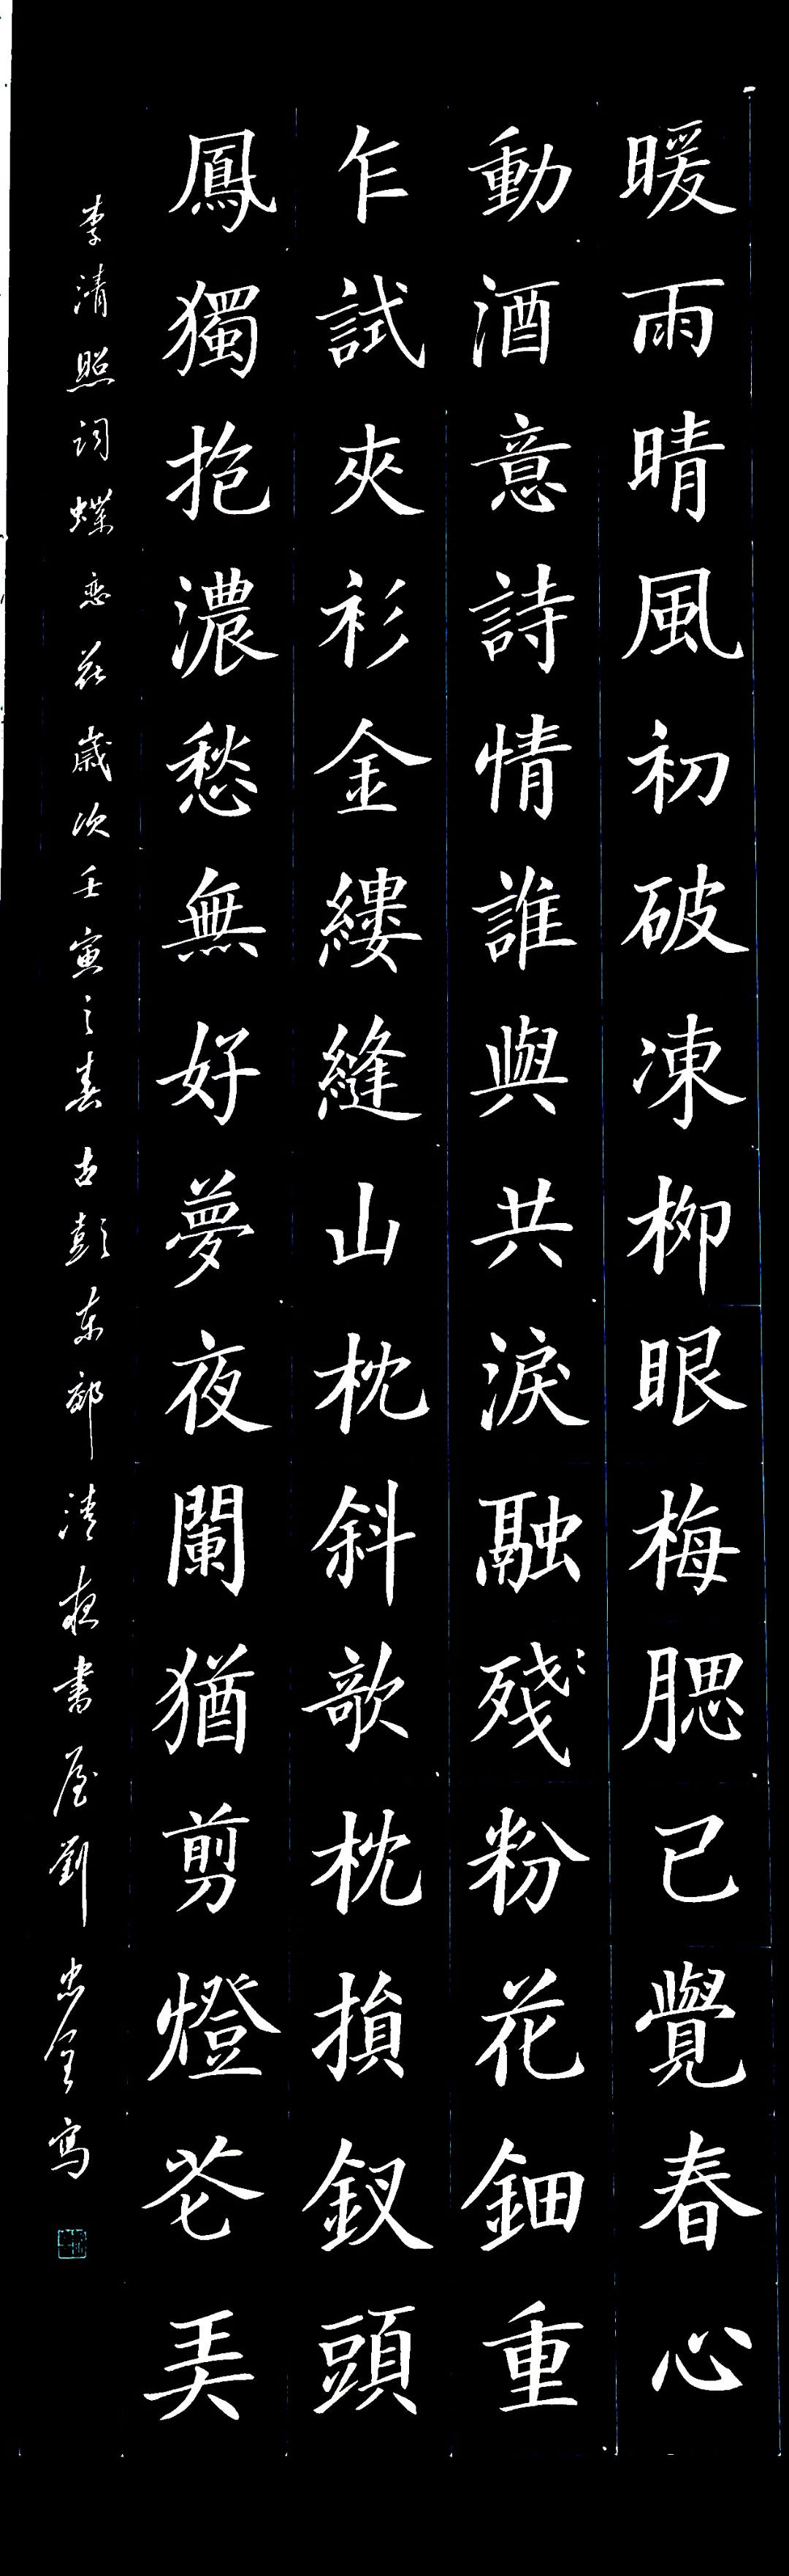 暖雨晴風初破凍柳眼梅腮已覺春心
動酒意詩情誰與共淚融殘粉花鈿重
乍試夾衫金縷縫山枕斜歌枕損釵頭
鳳獨抱濃愁無好夢夜闌猶剪燈花弄
李清照詞蝶恋花歲次壬寅之春古彭東部清夜書屋劉忠全寫